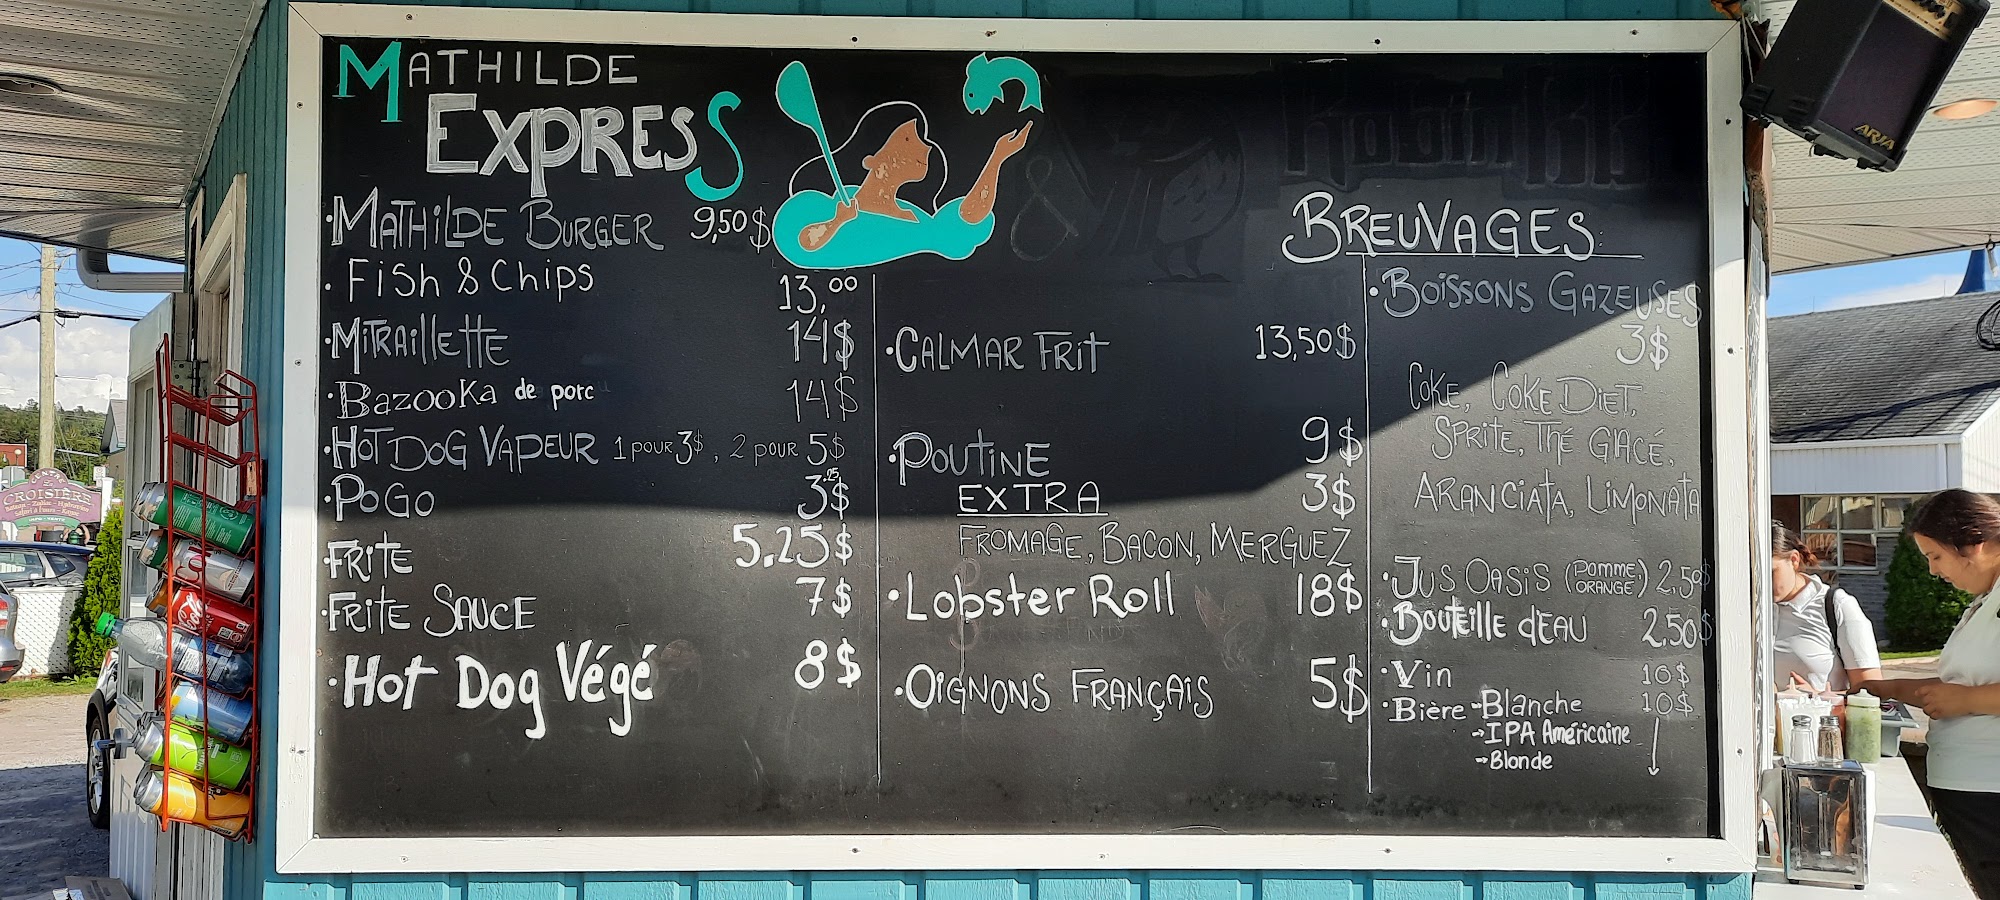 MATHILDE
EXPRESS
·MATHILDE BURGER 9,50$
·Fish & Chips 13,00
·MITRAILLETTE 14$
·BazooKa de porc 14$
·HOT DOG VAPEUR 1 POUR 3$, 2 POUR 5$
·POGO 3.25$
·FRITE 5.25$
·FRITE SAUCE 7$
·Hot Dog Végé 8$
·CALMAR FRIT 13,50$
·POUTINE 9$
EXTRA 3$
FROMAGE, BACON, MERGUEZ
·Lobster Roll 18$
·OIGNONS FRANÇAIS 5$
BREUVAGES:
·BOISSONS GAZEUSES
3$
COKE, COKE DIET,
SPRITE, THÉ GLACÉ,
ARANCIATA, LIMONATA
·JUS OASIS (POMME, ORANGE) 2,50$
·BOUTEILLE dEAU 2,50$
·Vin 10$
·Bière -Blanche 10$
-IPA Américaine
-Blonde
ARIA
CROISIÈRE